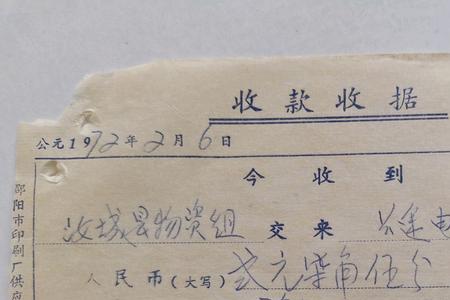 收款收据
公元1972年2月6日
今收到
汝城县物资组交来长途电
人民币(大写)弍元柒角伍分
邵阳市印刷厂供应